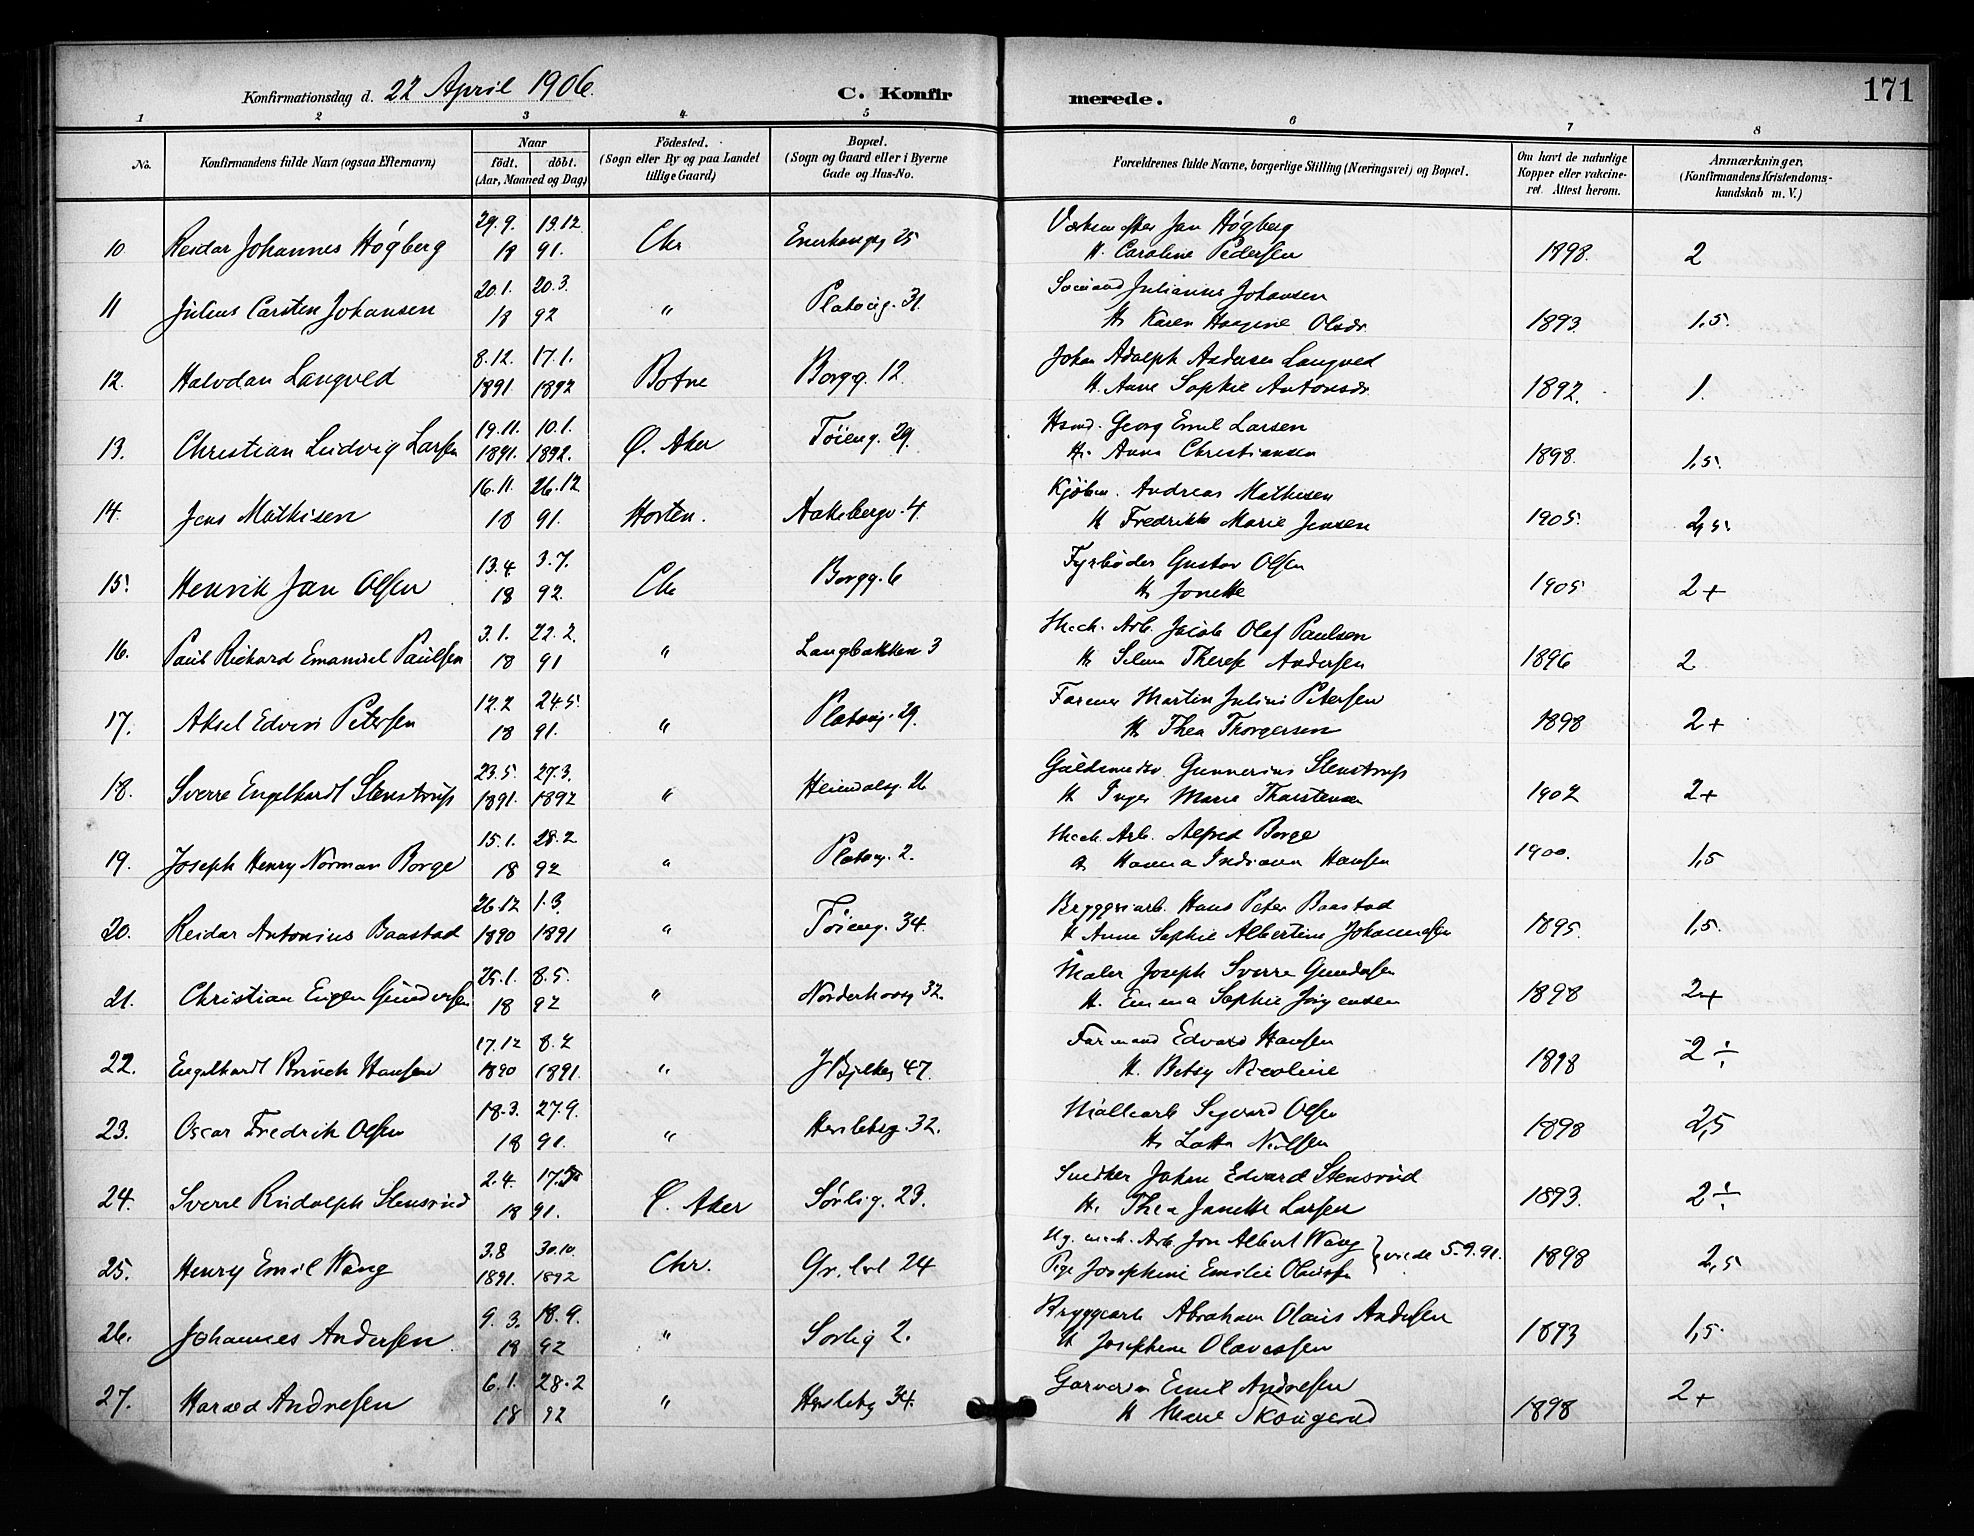 171
Konfirmationsdag d. 22 April 1906.
C. Konfirmerede.
1 2 3 4 5 6 7 8
No.
Konfirmandens fulde Navn (ogsaa Efternavn)
Naar
födt. döbt.
(Aar, Maaned og Dag)
Födested.
(Sogn eller By og paa Landet
tillige Gaard)
Bopæl.
(Sogn og Gaard eller i Byerne
Gade og Hus-No.
Forældrenes fulde Navne, borgerlige Stilling (Næringsvei) og Bopæl.
Om havt de naturlige
Kopper eller vakcine-
ret. Attest herom.
Anmærkninger.
(Konfirmandens Kristendoms-
kundskab m. V.)
29.9. 19.12. Jan Högberg
10. Reidar Johannes Högberg 18 91. Chr 25 H. Caroline Pedersen 1898. 2
20.1. 20.3. Julianus Johansen
11 Julius Carsten Johansen 18 92 " Platoug. 31. H. Karen Olsdr. 1893. 1,5.
8.12. 17.1. Johan Adolph Andersen Langved
12. Halvdan Langved 1891. 1892 Botne Borgg. 12. H. Anne Sophie Antonsdr 1892. 1.
19.11. 10.1. Georg Emil Larsen
13. Christian Ludvig Larsen 1891. 1892. Ø. Aker Töieng. 29. H. Anna Christiansen 1898. 1,5.
16.11. 26.12 Kjöbm. Andreas Mathisen
14. Jens Mathisen 18 91. Horten. Aakebergv. 4. H Fredrikke Marie Jensen 1905. 2,5.
13.4 3.7. Fyrböder Gustav Olsen
15. Henrik Jan Olsen 18 92. Chr Borgg. 6 H. Jonette 1905 2+
3.1. 22.2. Mech. Arb. Jacob Olaf Paulsen
16. Paul Richard Emanuel Paulsen 18 91 " Langbakken 3 H Therese Andersen 1896 2
12.2 24.5. Martin Julius Petersen
17. Aksel Edvin Petersen 18 91. " Platoug. 29. H. Thea Thorgersen 1898 2+
23.5. 27.3. Guldsmedsv. Gunnerius Stenstrup
18. Sverre Engelhardt Stenstrup 1891. 1892 " Heimdalsg. 26 H Inger Marie Thorstensen 1902 2+
15.1. 28.2 Mech. Arb. Alfred Borge
19. Joseph Henry Norman Borge 18 92 " Platoug. 2. H. Hanna Indiana Hansen 1900. 1,5
26.12 1.3. Bryggeriarb. Hans Peter Baastad
20. Reidar Antonius Baastad 1890 1891 " Töieng. 34. H Anne Sophie Albertine Johannesen 1895. 1,5.
25.1. 8.5. Maler Joseph Sverre Gundersen
21. Christian Eugen Gundersen 18 92 " Norderhovsg 32. H. Emma Sophie Jörgensen 1898 2+
17.12 8.2 Formand Edvard Hansen
22. Engelhardt Brinch Hansen 1890 1891. " J Bjelkeg 47. H. Betsy Nicoline 1898 2 ÷
18.3. 27.9. Sigvard Olsen
23. Oscar Fredrik Olsen 18 91. " Herslebsg. 32. H. Lotta Nielsen 1898 2,5
2.4. Snedker Johan Edvard Stensrud
24. Sverre Rudolph Stensrud 18 91. Ø. Aker Sörlig. 23. H. Thea Janette Larsen 1893. 2 ÷
3.8 30.10. Ug. mech. Arb. Jon Albert Wang
25. Henry Emil Wang 1891. 1892 Chr. Gr. lel 24 Pige Josephine Emilie Olausen } viede 5.9.91. 1898 2,5
9. 3. 18.9. Bryggearb Abraham Olaus Andersen
26. Johannes Andersen. 18 92 " Sorlig 2. H Josephine Olavessen 1893 1,5.
6.1. 28.2 Emil Andresen
27. Harald Andresen 18 92 " Herslebg 34. H Marie Skougerud 1898 2+